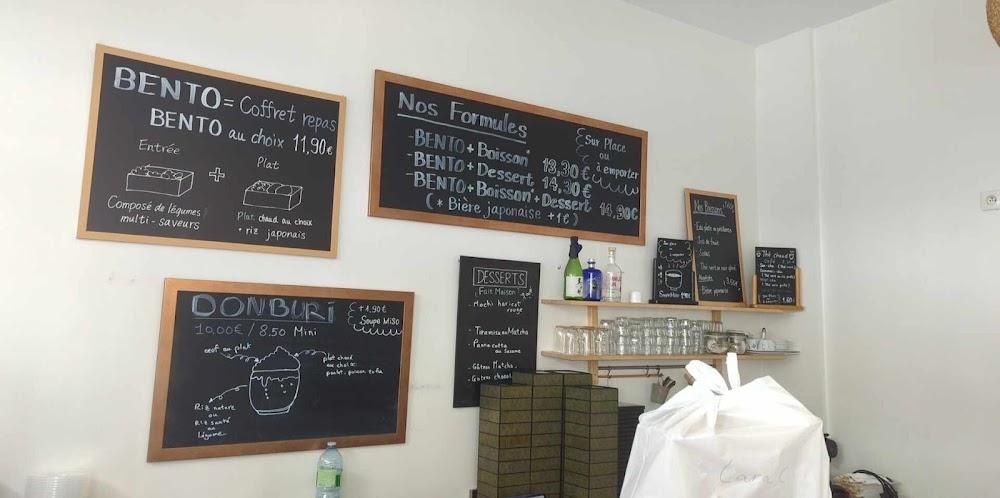 BENTO = Coffret repas
BENTO au choix 11,90€
Entrée
+
Plat
Composé de légumes
multi-saveurs
Plat chaud au choix
+ riz japonais
Nos Formules
Sur Place
ou
à emporter
- BENTO + Boisson* 13,30€
- BENTO + Dessert 14,30€
- BENTO + Boisson* + Dessert 14,90€
(* Bière japonaise +1€)
DONBURI
10,00€ / 8.50 Mini
+1,90€
Soupe MISO
oeuf au plat
plat chaud
au choix
poulet, poisson, tofu
Riz nature
ou
Riz sauté
au
Légume
DESSERTS
Fait Maison
- Mochi haricot
rouge
- Tiramisu au Matcha
- Panna cotta
au Sésame
- Gâteau Matcha
- Gâteau chocolat
Nos Boissons
Jus de fruit
Sodas
Thé vert ou noir glacé
Bière japonaise
Thé chaud